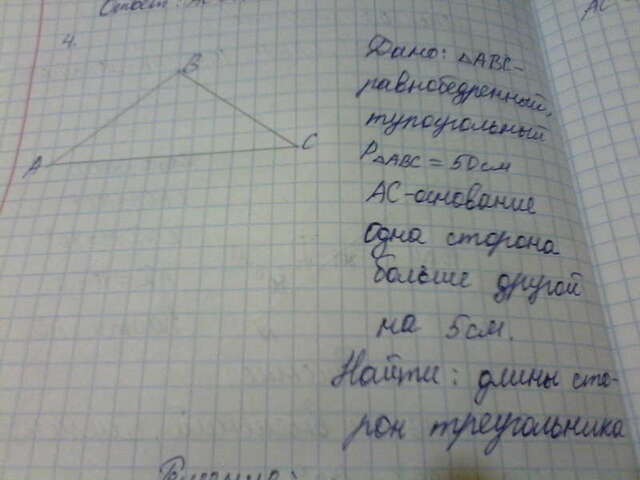 4.
B
A
C
Дано: △ABC-
равнобедренный,
тупоугольный
P△ABC = 50см
AC-основание
одна сторона
больше другой
на 5см.
Найти: длины сто-
рон треугольника